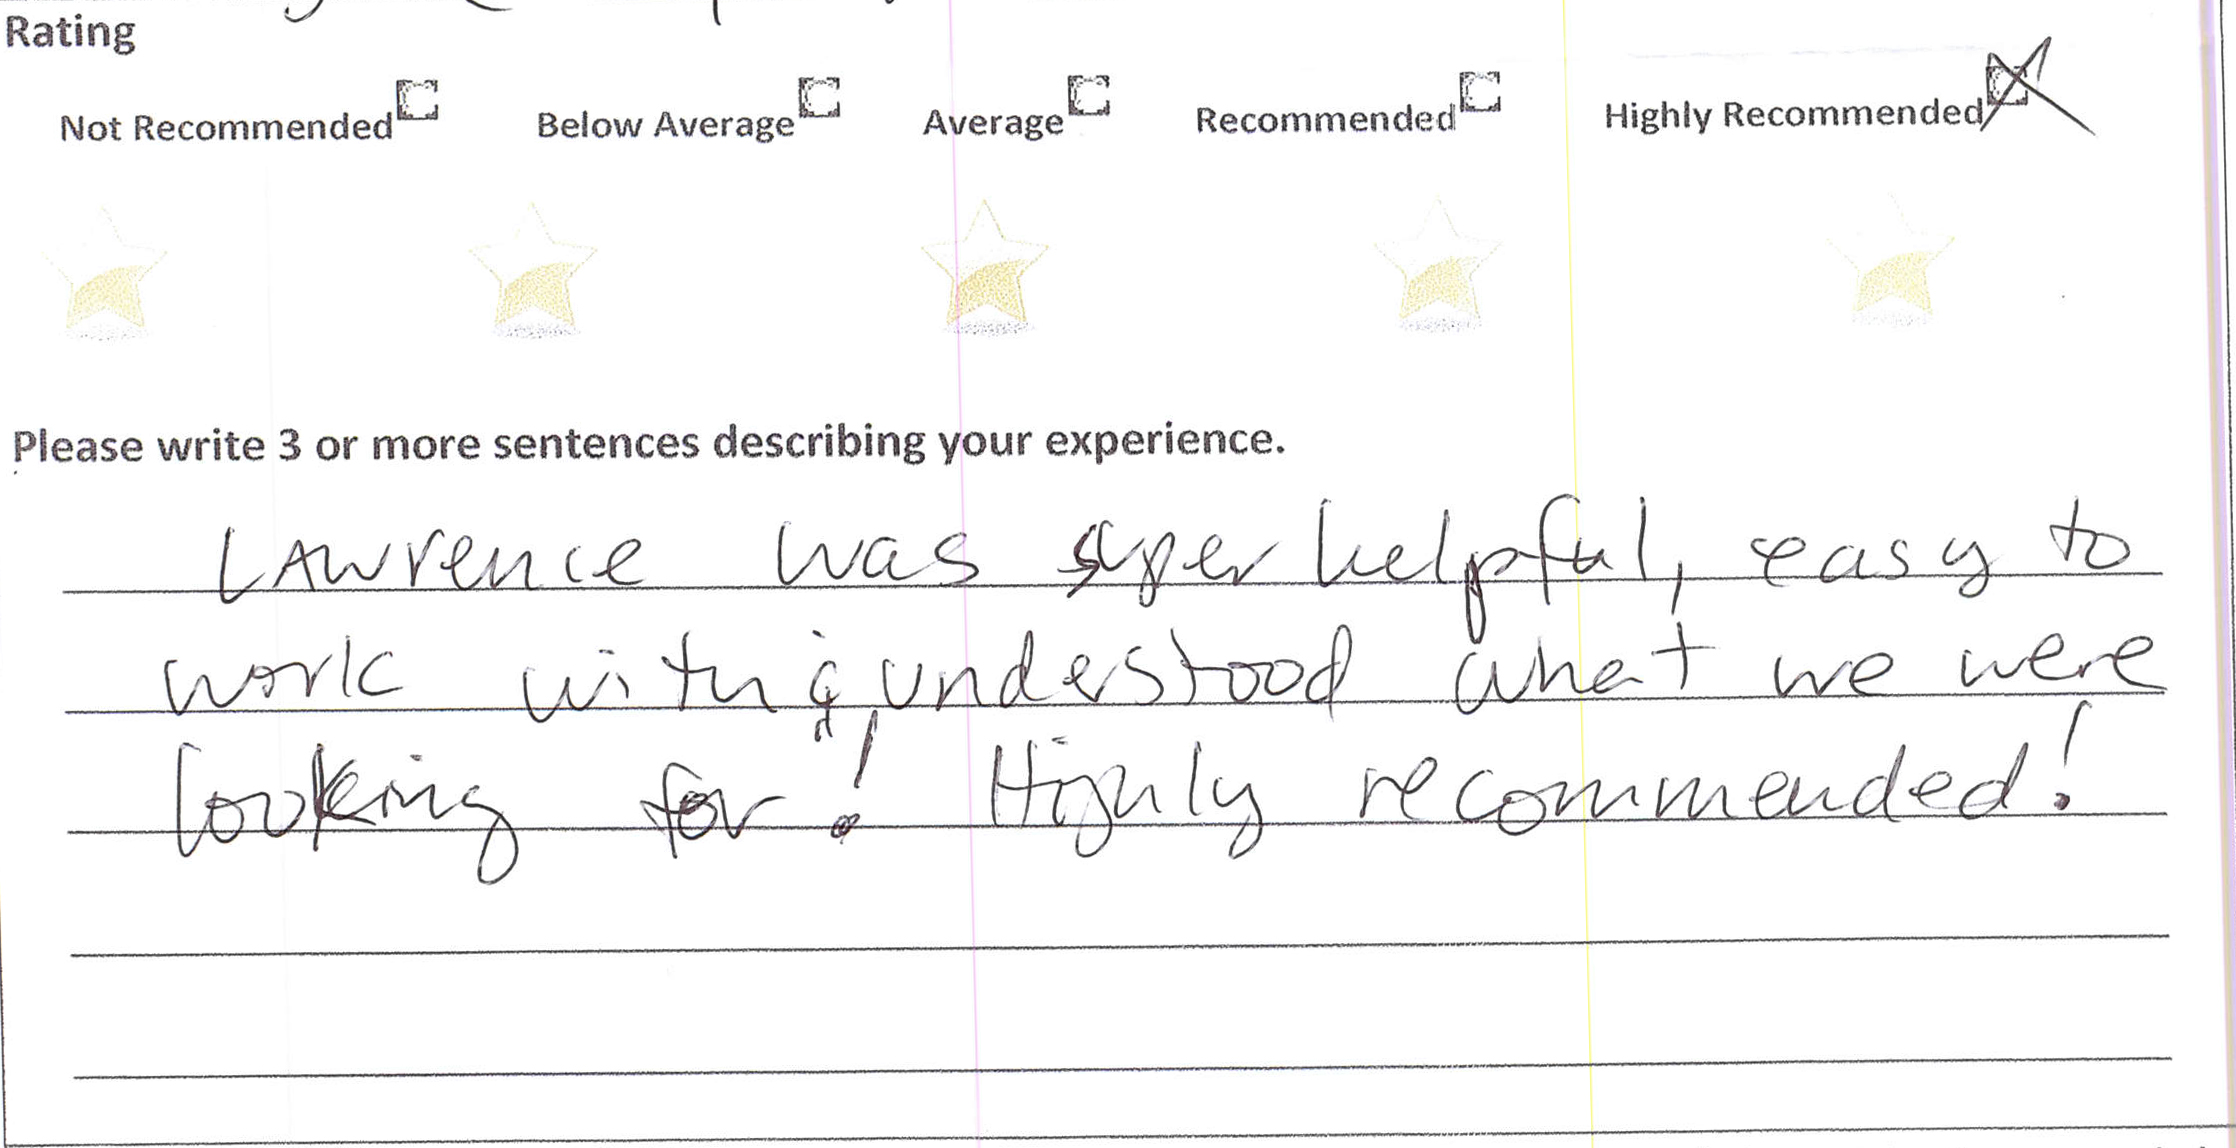 Rating
Not Recommended Below Average Average Recommended Highly Recommended
Please write 3 or more sentences describing your experience.
LAwrence was super helpful, easy to
work with & understood what we were
looking for! Highly recommended!